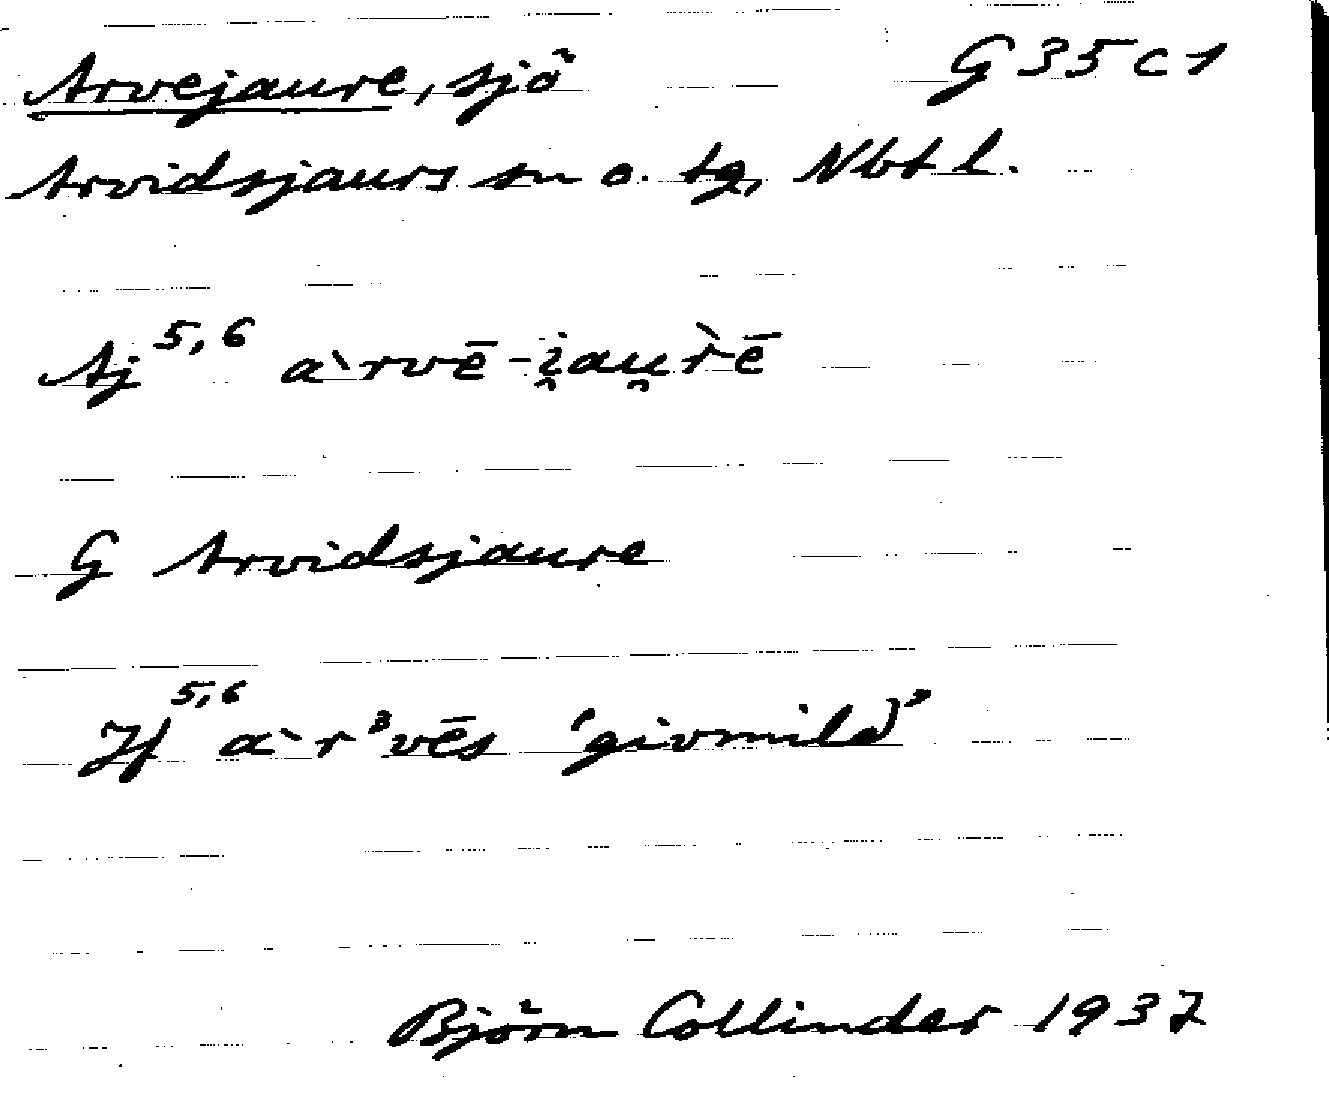 Arvejaure, sjö G 35 c 1
Arvidsjaurs sn o. tg, Nbt l.
Aj 5,6 a`rvē-i̯au̯r̀ē
G Arvidsjaure
Jf 5,6 a`rᵌvēs 'givmild'
Björn Collinder 1937